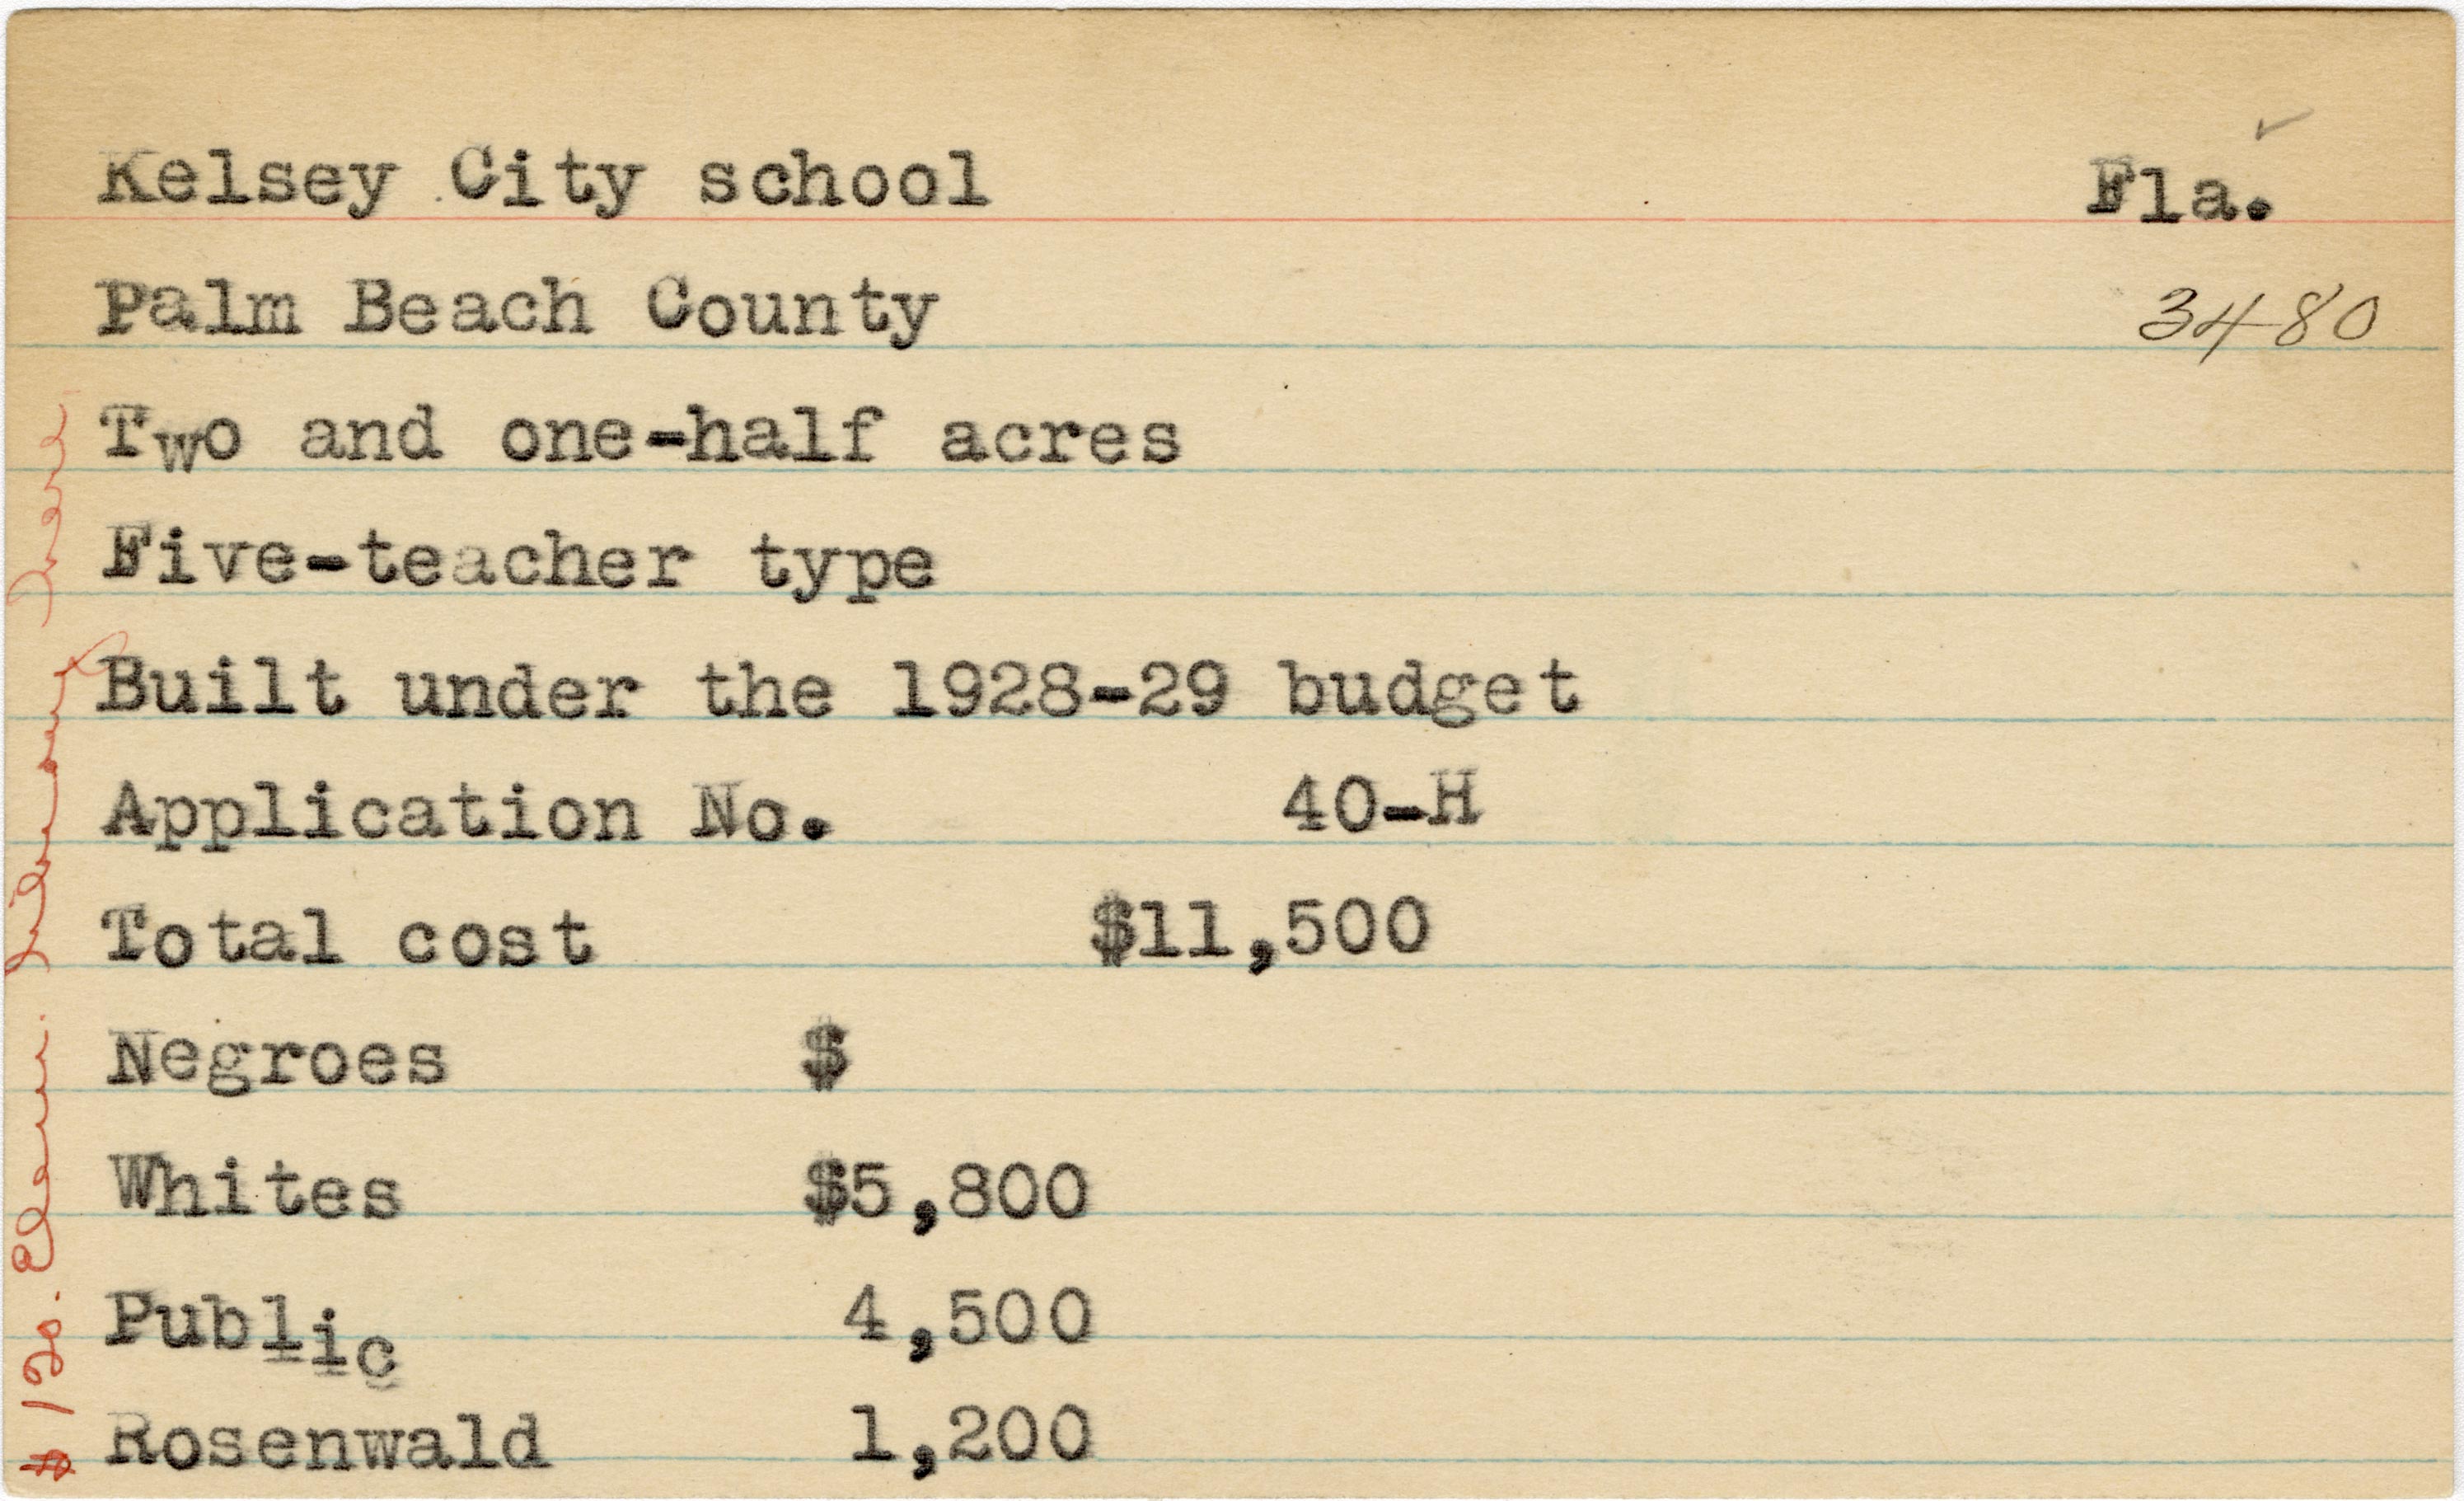 Kelsey City school Fla.
Palm Beach County 3480
Two and one-half acres
Five-teacher type
Built under the 1928-29 budget
Application No. 40-H
Total cost $11,500
Negroes $
Whites $5,800
Public 4,500
Rosenwald 1,200
$120. Elem. Library here.